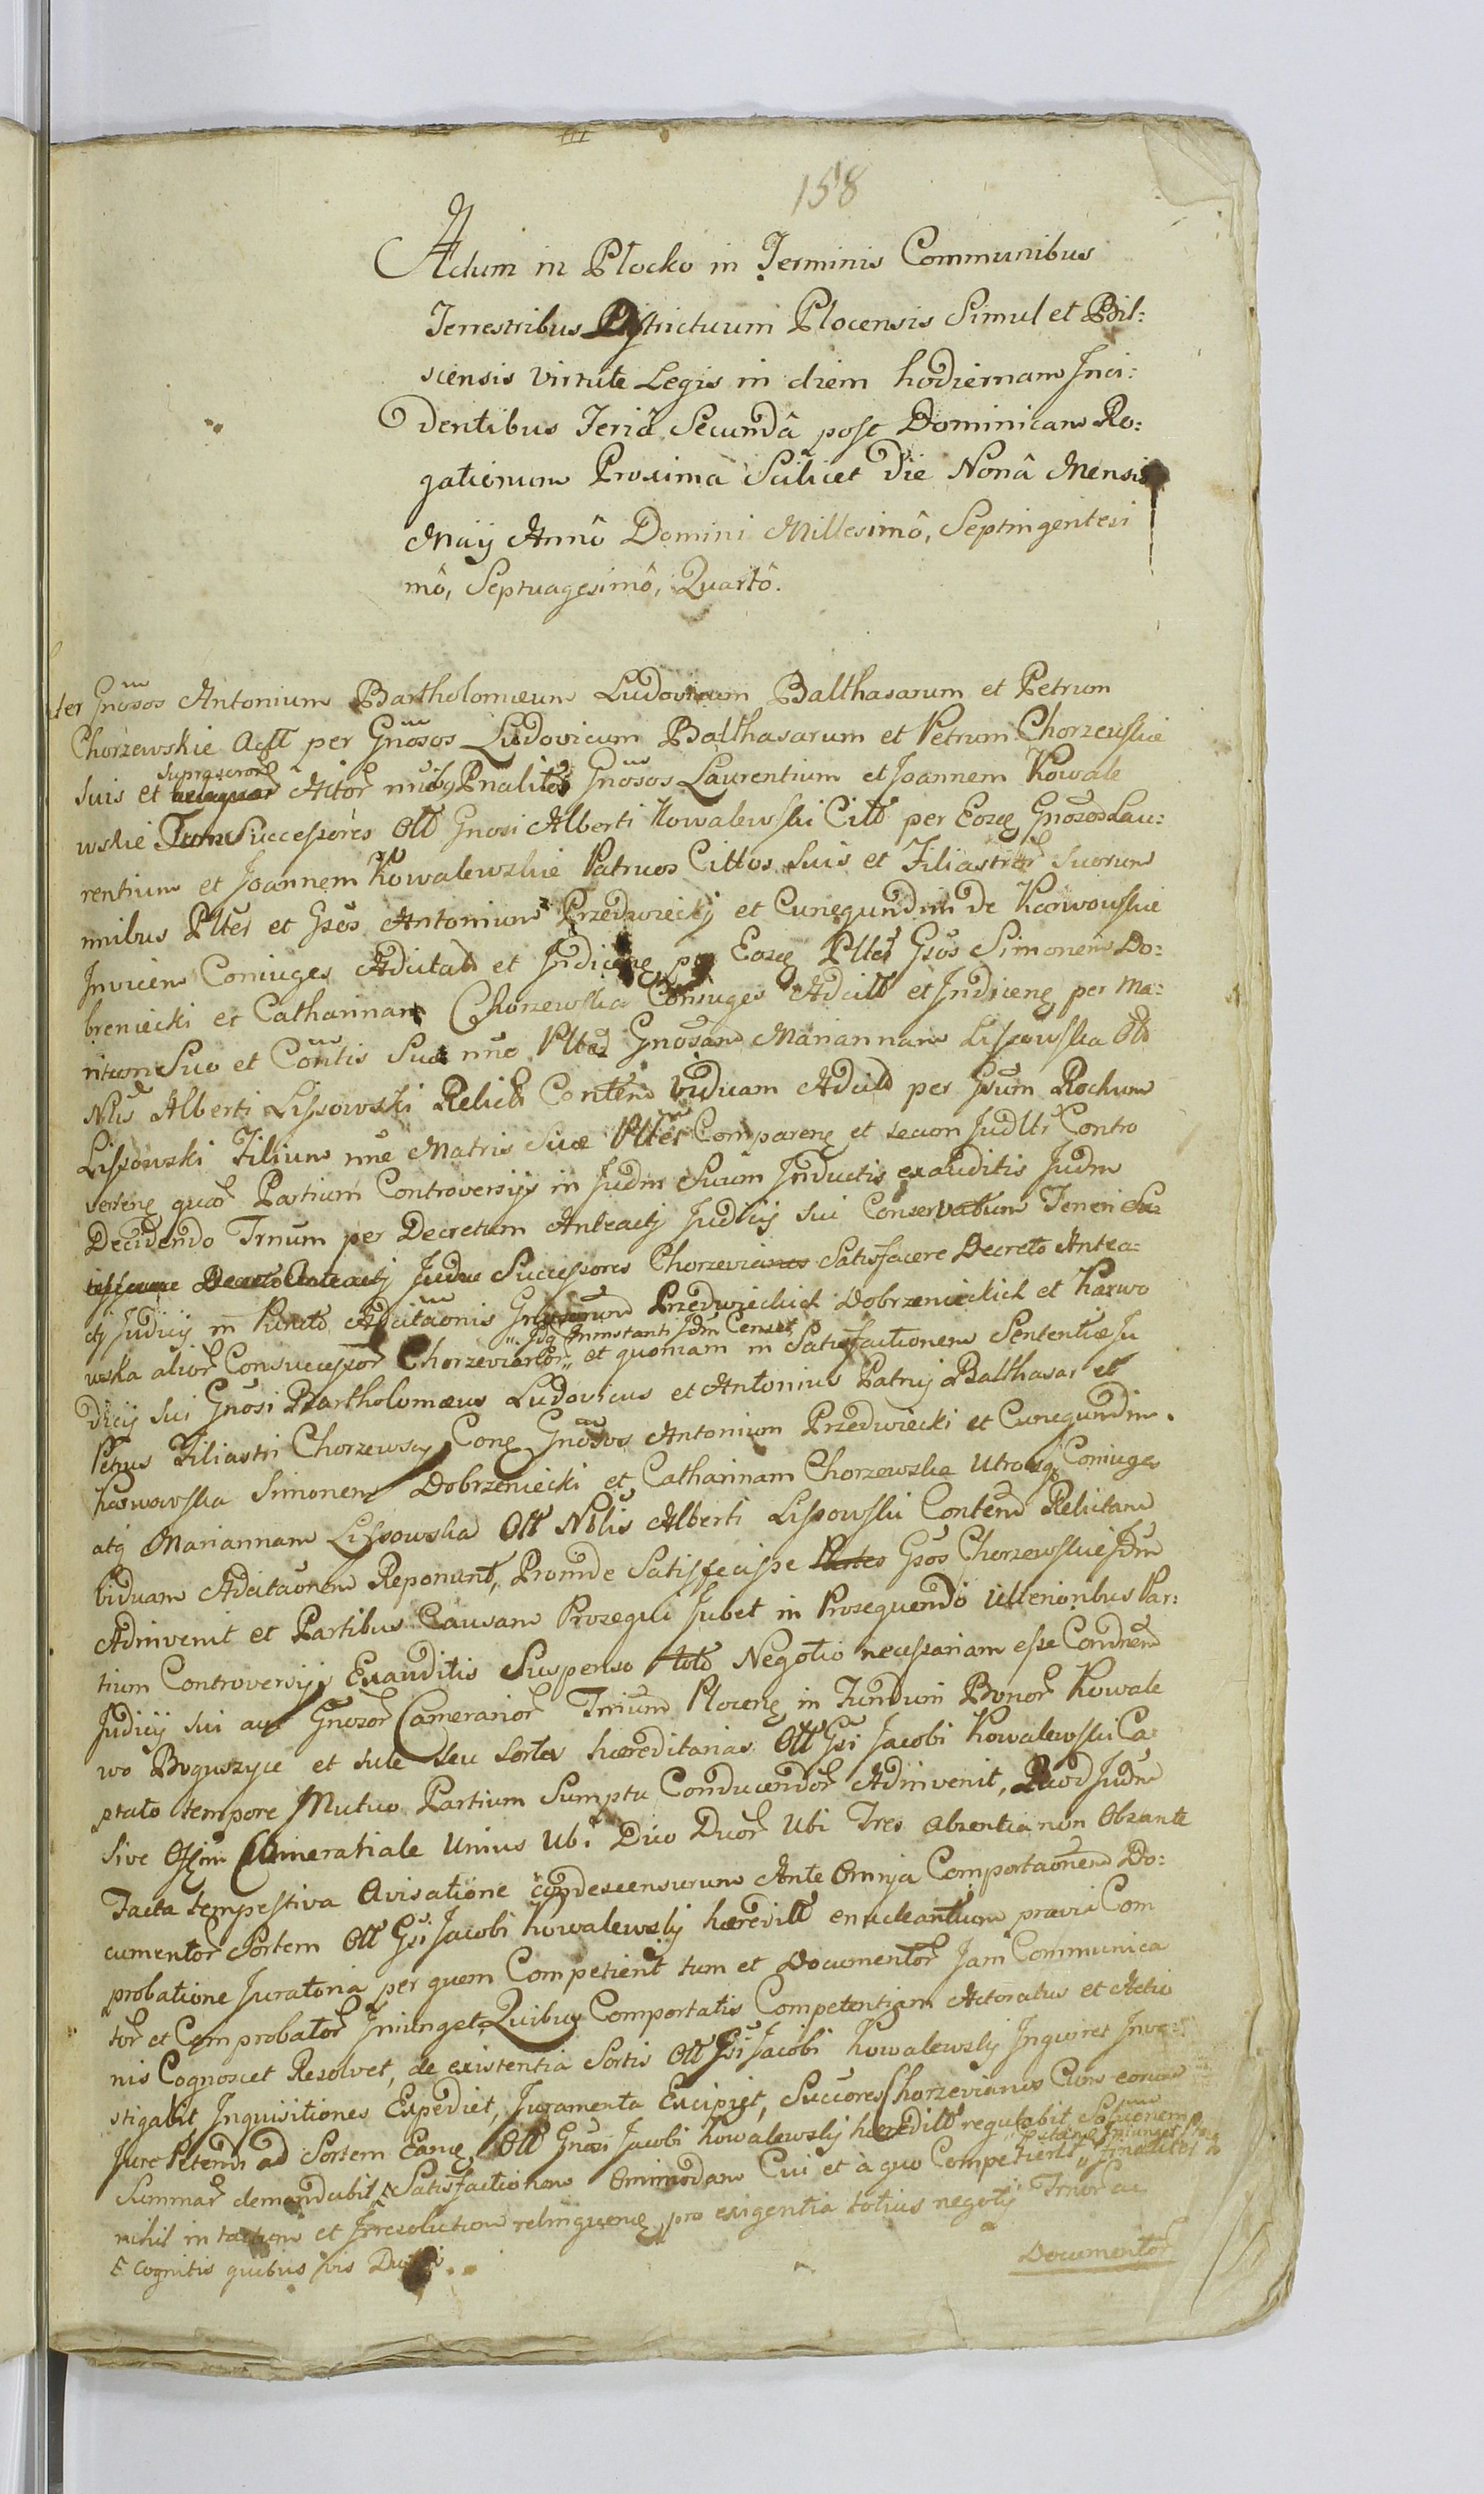 158
Actum in Plocko in Terminis Communibus
Terrestribus Districtuum Plocensis Simul et Bil:
scensis virtute Legis in diem hodiernam Inci:
dentibus Feriâ Secundâ post Dominicam Ro:
gationum Proxima Scilicet Die Nonâ Mensis
Maij Annô Domini Millesimô, Septingentesi
mô, Septuagesimô, Quartô.
ter Gnosos Antonium Bartholomæum Ludovicum Balthasarum et Petrum
Chorzewskie Actt per Gnosos Ludovicum Balthasarum et Petrum Chorzewskie
suis et suprascror Actor nnibq Pnaliter Gnosos Laurentium et Joannem Kowale
wskie Tum Successores Olt Gnosi Alberti Kowalewski Citt per Eosq Gnosos Lau:
rentium et Joannem Kowalewskie Patruos Cittos suis et Filiastror suorum
nnibus Pltes et Gsos Antonium Przedwiecki et Cunegundim de Karwowskie
Invicem Coniuges Adcitat et Indiceng per Eosq Pltes Gsos Simonem Do:
breniecki et Catharinam Chorzewska Coniuges Adcitt et Indiceng per Ma:
ritum Suo et Contis Suæ nne Pltes Gnosam Mariannam Lissowska Olt
Nlis Alberti Lissowski Relict Contem Viduam Adcitt per Gsum Rochum
Lissowski Filium nne Matris Suæ Pltes Compareng et secum Judltr Contro
verteng quar Partium Controversijs in Judm Suum Inductis exauditis Judm
Decidendo Trnum per Decretum Anteacty Judicij sui Conservatum Teneri
Successores Chorzevianos Satisfacere Decreto Antea:
cty Judicij in Puncto Adcitaonis Przedwieckich Dobrzenieckich et Karwo
wska alior Consuccessor Chorzevianor „Idq Inmstanti Jdm Censet„ et quoniam in Satisfactionem Sententiæ Ju
dicij sui Gnosi Bartholomæus Ludovicus et Antonius Patruj Balthasar et
Petrus Filiastri Chorzewscy Cong Gnosos Antonium Przedwiecki et Cunegundim
Karwowska Simonem Dobrzeniecki et Catharinam Chorzewska Utrosq Coniuges
atq Mariannam Lissowska Olt Nlis Alberti Lissowski Contem Relictam
Viduam Adcitaonem Reponunt, Proinde Satisfecisse Gsos Chorzewskie Jdm
Adinvenit et Partibus Causam Prosequi Jubet in Prosequendo Ulterioribus Par:
tium Controversijs Exauditis Suspenso toto Negotio necessariam esse Condnem
Judicij sui aut Gnosor Camerarior Trrium Plocens in Fundum Bonor Kowale
wo Boguszyce et sule seu Sortes hæreditarias Olt Gsi Jacobi Kowalewski Ca:
ptato tempore Mutuo Partium Sumptu Conducendor Adinvenit, Quod Judm
sive Offim Camerariale Unius Ubi Duo Duor Ubi Tres absentia non Obstante
Facta tempestiva Avisatione condescensurum Ante Omnja Comportaonem Do:
cumentor Sortem Olt Gsi Jacobi Kowalewsky hæreditt enucleantium prævia Com
probatione Juratoria per quem Competient tum et Documentor Jam Communica
tor et Comprobator Iniunget, Quibus Comportatis Competentjam Actoratus et Actio
nis Cognoscet Resolvet, de existentia Sortis Olt Gsi Jacobi Kowalewsky Inquiret Inve:
stigabit Inquisitiones Expediet, Juramenta Excipiet, Succores Chorzevianos Cum eorum
Jure Petendi ad Sortem Eang Olt Gnosi Jacobi Kowalewsky hæreditt regulabit Soluonem
Summar demandabit, Satisfactionem Omnimodam Cui et à quo Competient finaliter
nihil intactum et Irresolutum relinquend pro exigentia totius negotij Trnor
Cognitis quibusvis
Documentor